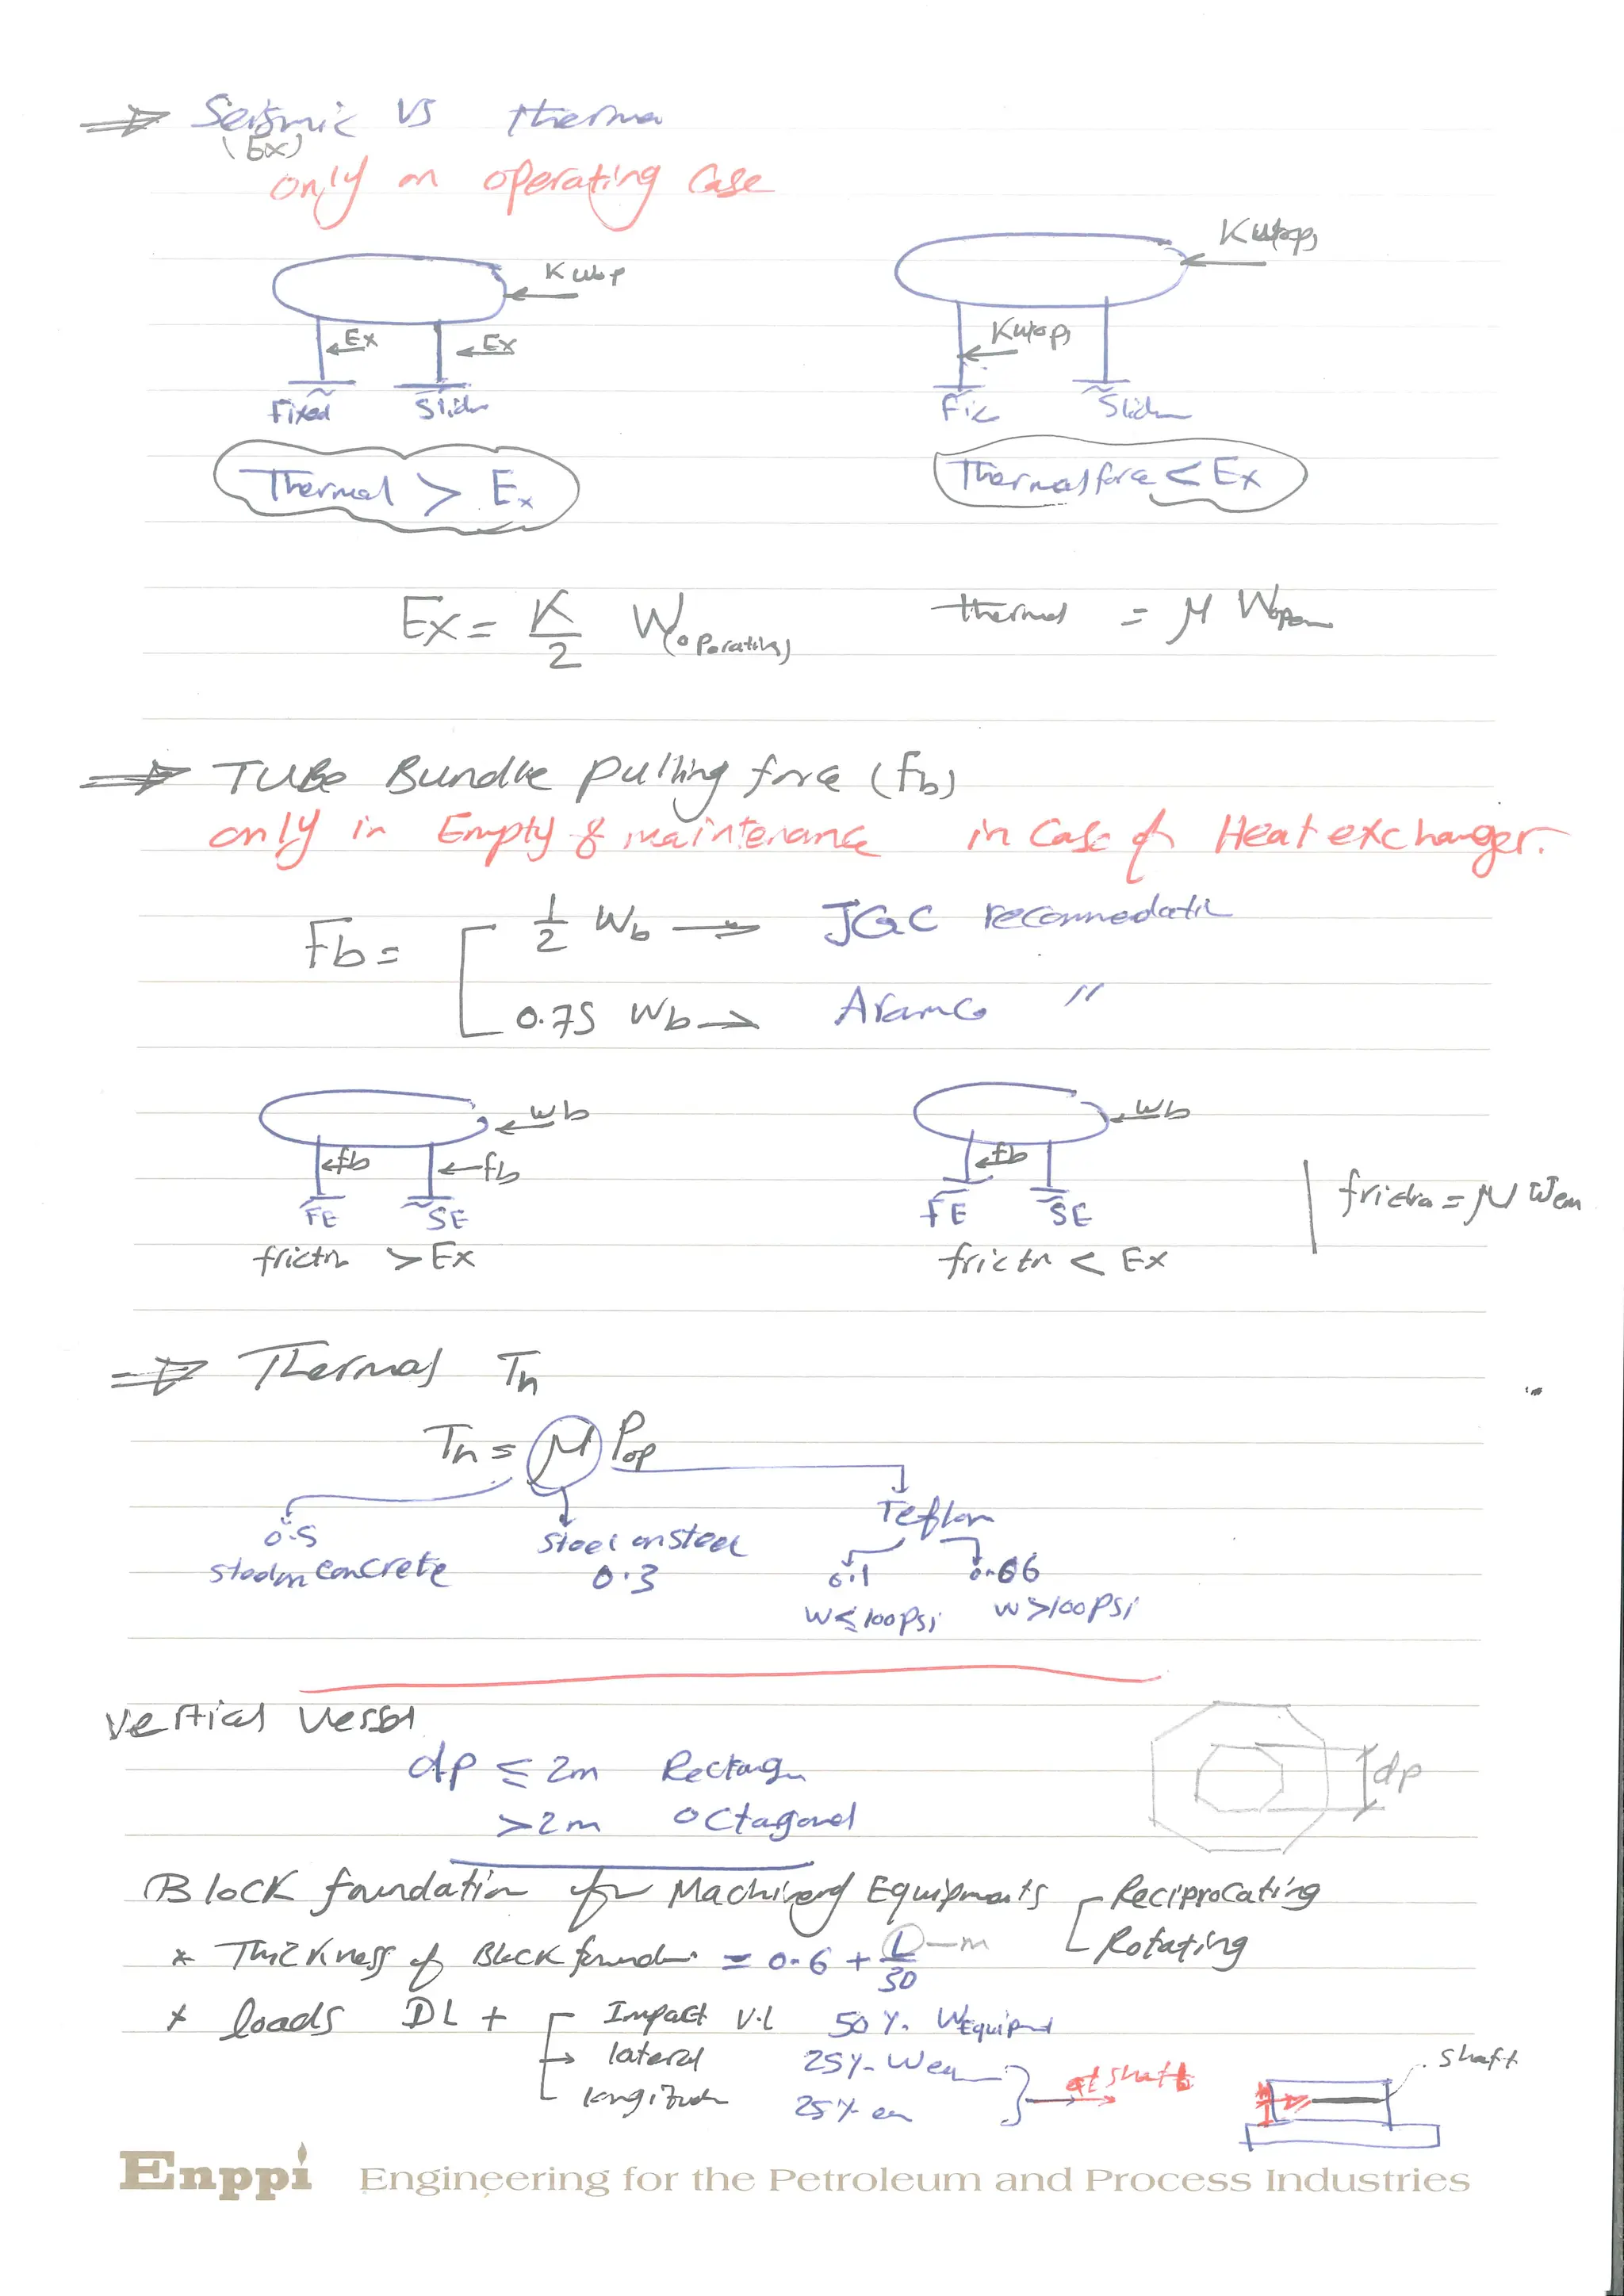 ⇒ Seismic VS therma
(Ex)
only on operating Case
K Wop
Ex Ex
Fixed Slide
Thermal > Ex
K W(op)
K W(op)
Fix Slide
Thermal force < Ex
Ex = K/2 W(operating)
thermal = μ Wopen
⇒ TUBe Bundle Pulling force (Fb)
only in Empty & maintenance in Case of Heat exchanger.
Fb =
1/2 Wb → JGC recommedatin
0.75 Wb → Aramco "
Wb
fb fb
FE SE
frictn > Ex
Wb
fb
FE SE
frictn < Ex
friction = μ Wem
⇒ Thermal Tn
Tn = μ Pop
0.5
steel on concrete
steel on steel
0.3
Teflon
0.1 0.06
W ≤ 100 psi W > 100 psi
Vertical Vessel
dp ≤ 2m Rectang
> 2m octagonal
dp
Block foundation for Machinery Equipments
Reciprocating
Rotating
* Thickness of Block found. = 0.6 + L/30 — m
* loads DL +
Impact V.L 50 %. WEquipment
lateral 25 %. Weq
longitud 25 % eq
at shaft
shaft
Enppi Engineering for the Petroleum and Process Industries